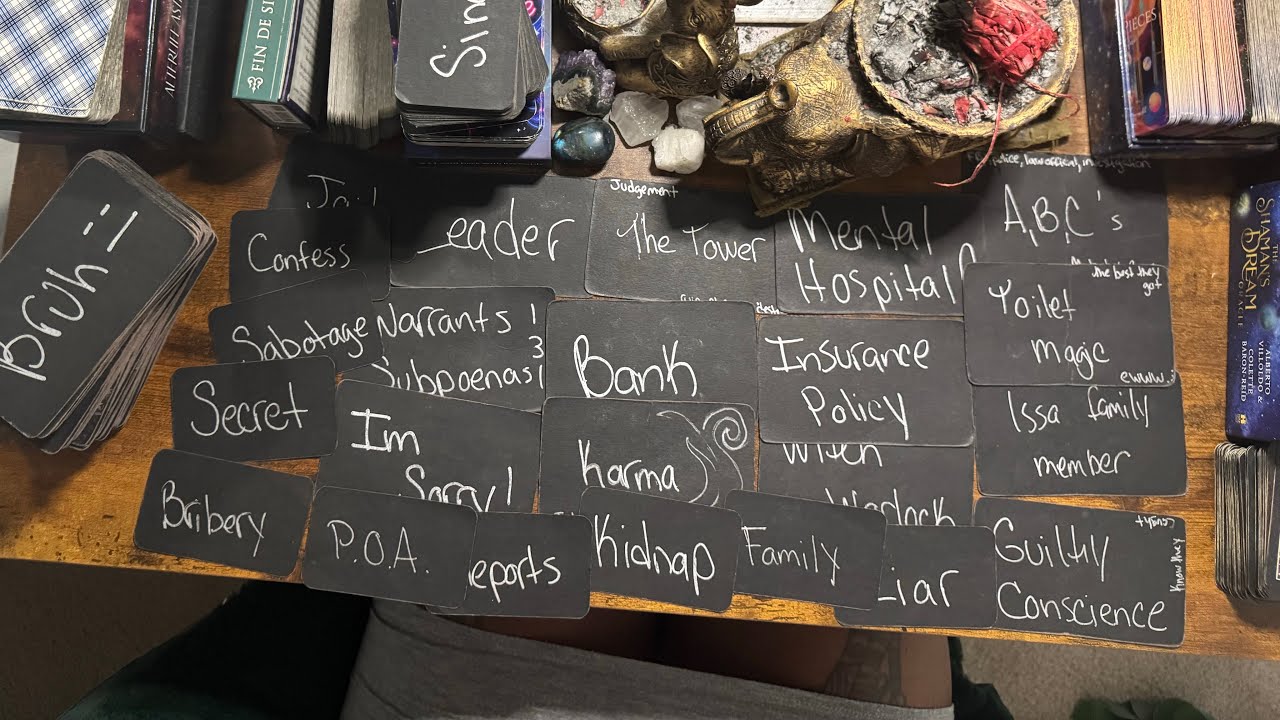 FIN DE SI
Bruh =
Confess
Leader
Judgement
The Tower
Mental
Hospital
police, law official, investigation
A,B,C's
Sabotage
Warrants !
3
Subpoenas!
Bank
Insurance
Policy
The best they
got
Toilet
magic
ewww..
Secret
Im
Sorry!
Karma
Witch
Warlock
Issa family
member
Bribery
P.O.A.
Reports
Kidnap
Family
Liar
Caught
Guiltly
Conscience
Knew they
THE
SHAMAN'S
DREAM
ORACLE
ALBERTO
VILLOLDO &
COLETTE
BARON-REID